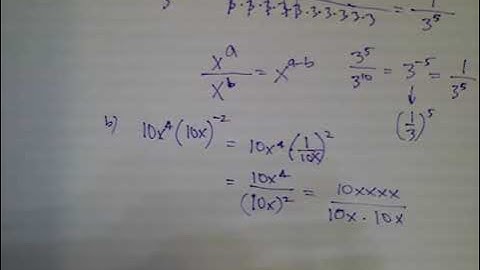 3·3·3·3·3·3·3·3·3·3 = 1/3^5
x^a/x^b = x^(a-b) 3^5/3^10 = 3^-5 = 1/3^5
↓
(1/3)^5
b) 10x^4 (10x)^-2 = 10x^4 · (1/10x)^2
= 10x^4/(10x)^2 = 10xxxx/10x · 10x